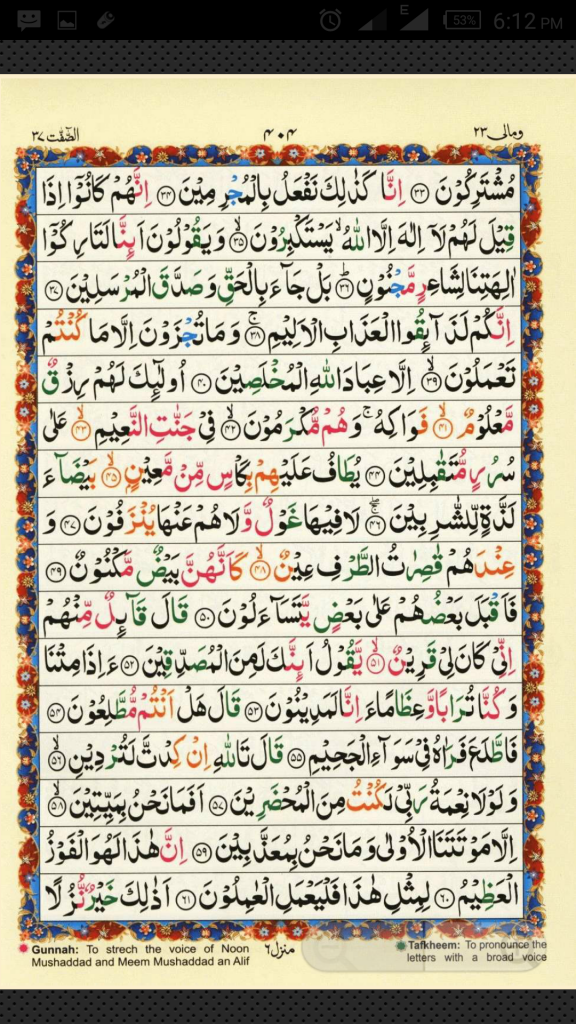 E 53% 6:12 PM
ومالی ۲۳ ۴۰۴ الصّٰٓفّٰت ۳۷
مُشْتَرِكُوْنَ ۝۳۳ اِنَّا كَذٰلِكَ نَفْعَلُ بِالْمُجْرِمِيْنَ ۝۳۴ اِنَّهُمْ كَانُوْۤا اِذَا
قِيْلَ لَهُمْ لَاۤ اِلٰهَ اِلَّا اللّٰهُ ۙ يَسْتَكْبِرُوْنَ ۝۳۵ۙ وَيَقُوْلُوْنَ اَئِنَّا لَتَارِكُوْۤا
اٰلِهَتِنَا لِشَاعِرٍ مَّجْنُوْنٍ ۝۳۶ؕ بَلْ جَآءَ بِالْحَقِّ وَصَدَّقَ الْمُرْسَلِيْنَ ۝۳۷
اِنَّكُمْ لَذَآئِقُوا الْعَذَابِ الْاَلِيْمِ ۝۳۸ۚ وَمَا تُجْزَوْنَ اِلَّا مَا كُنْتُمْ
تَعْمَلُوْنَ ۝۳۹ۙ اِلَّا عِبَادَ اللّٰهِ الْمُخْلَصِيْنَ ۝۴۰ اُولٰٓئِكَ لَهُمْ رِزْقٌ
مَّعْلُوْمٌ ۝۴۱ۙ فَوَاكِهُ ۚ وَهُمْ مُّكْرَمُوْنَ ۝۴۲ۙ فِيْ جَنّٰتِ النَّعِيْمِ ۝۴۳ۙ عَلٰى
سُرُرٍ مُّتَقٰبِلِيْنَ ۝۴۴ يُطَافُ عَلَيْهِمْ بِكَاْسٍ مِّنْ مَّعِيْنٍ ۝۴۵ۙ بَيْضَآءَ
لَذَّةٍ لِّلشّٰرِبِيْنَ ۝۴۶ۚ لَا فِيْهَا غَوْلٌ وَّلَا هُمْ عَنْهَا يُنْزَفُوْنَ ۝۴۷ وَ
عِنْدَهُمْ قٰصِرٰتُ الطَّرْفِ عِيْنٌ ۝۴۸ۙ كَاَنَّهُنَّ بَيْضٌ مَّكْنُوْنٌ ۝۴۹
فَاَقْبَلَ بَعْضُهُمْ عَلٰى بَعْضٍ يَّتَسَآءَلُوْنَ ۝۵۰ قَالَ قَآئِلٌ مِّنْهُمْ
اِنِّيْ كَانَ لِيْ قَرِيْنٌ ۝۵۱ۙ يَّقُوْلُ اَئِنَّكَ لَمِنَ الْمُصَدِّقِيْنَ ۝۵۲ ءَاِذَا مِتْنَا
وَكُنَّا تُرَابًا وَّعِظَامًا ءَاِنَّا لَمَدِيْنُوْنَ ۝۵۳ قَالَ هَلْ اَنْتُمْ مُّطَّلِعُوْنَ ۝۵۴
فَاطَّلَعَ فَرَاٰهُ فِيْ سَوَآءِ الْجَحِيْمِ ۝۵۵ قَالَ تَاللّٰهِ اِنْ كِدْتَّ لَتُرْدِيْنِ ۝۵۶ۙ
وَلَوْلَا نِعْمَةُ رَبِّيْ لَكُنْتُ مِنَ الْمُحْضَرِيْنَ ۝۵۷ اَفَمَا نَحْنُ بِمَيِّتِيْنَ ۝۵۸ۙ
اِلَّا مَوْتَتَنَا الْاُوْلٰى وَمَا نَحْنُ بِمُعَذَّبِيْنَ ۝۵۹ اِنَّ هٰذَا لَهُوَ الْفَوْزُ
الْعَظِيْمُ ۝۶۰ لِمِثْلِ هٰذَا فَلْيَعْمَلِ الْعٰمِلُوْنَ ۝۶۱ اَذٰلِكَ خَيْرٌ نُّزُلًا
Gunnah: To strech the voice of Noon منزل ۶ Tafkheem: To pronounce the
Mushaddad and Meem Mushaddad an Alif letters with a broad voice